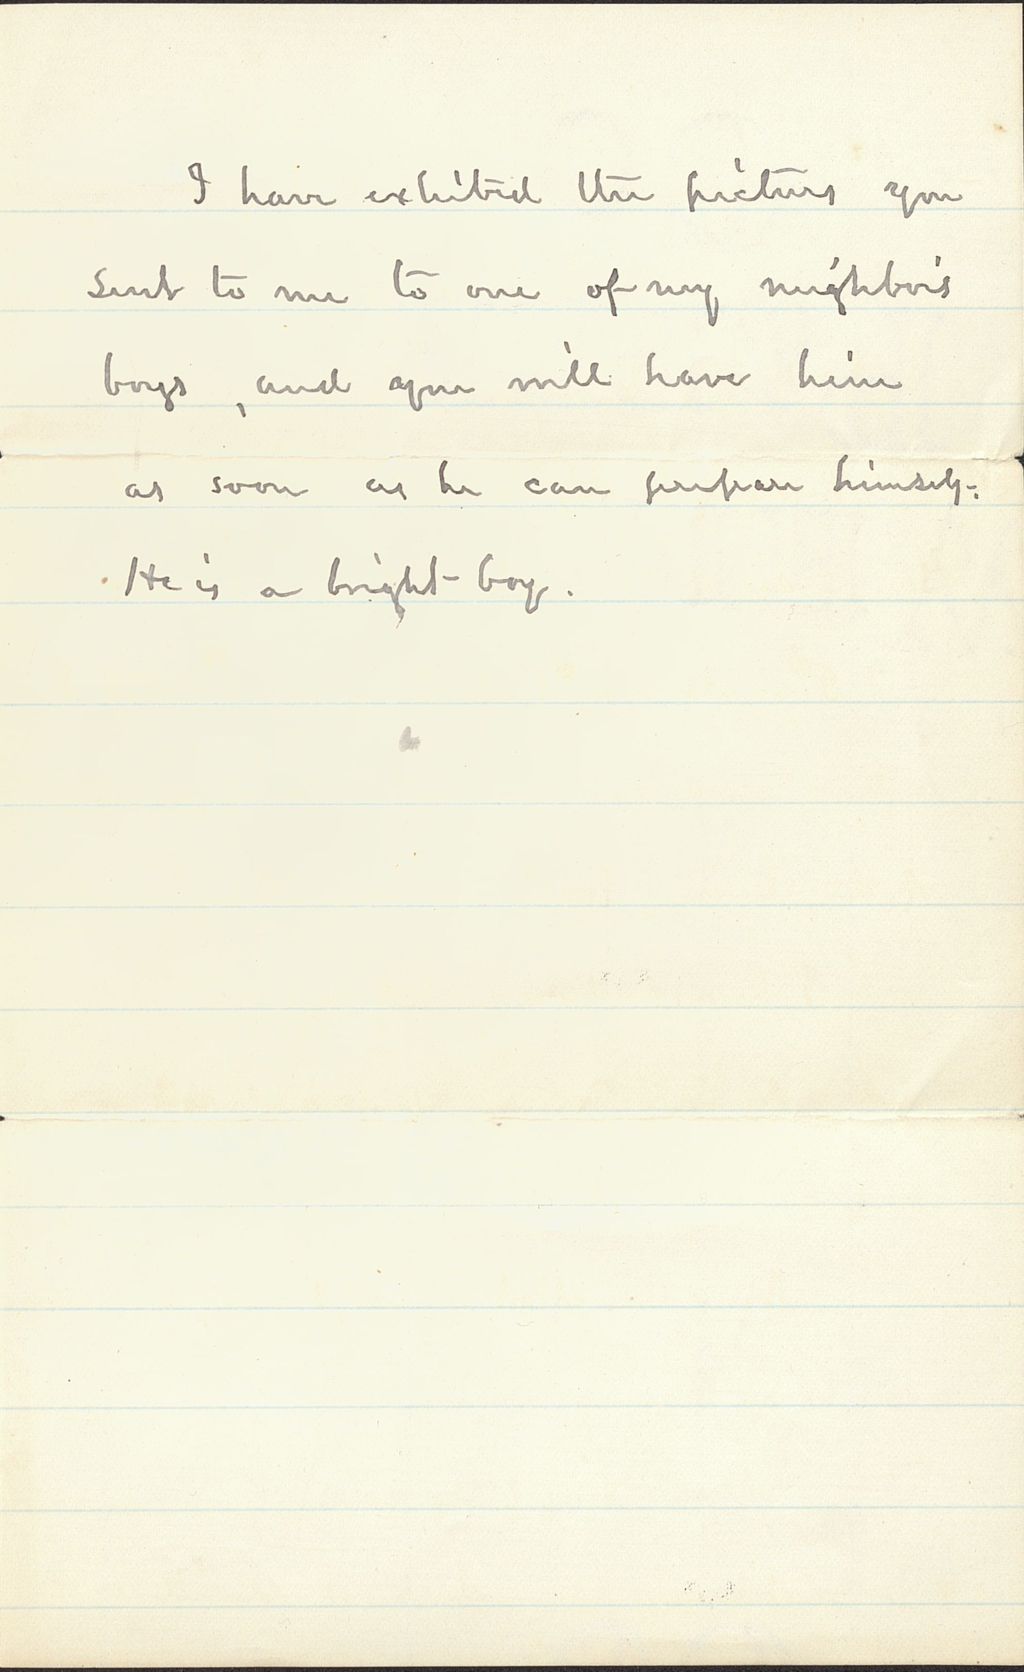 I have exhibited the pictures you
sent to me to one of my neighbor's
boys, and you will have him
as soon as he can prepare himself.
He is a bright boy.